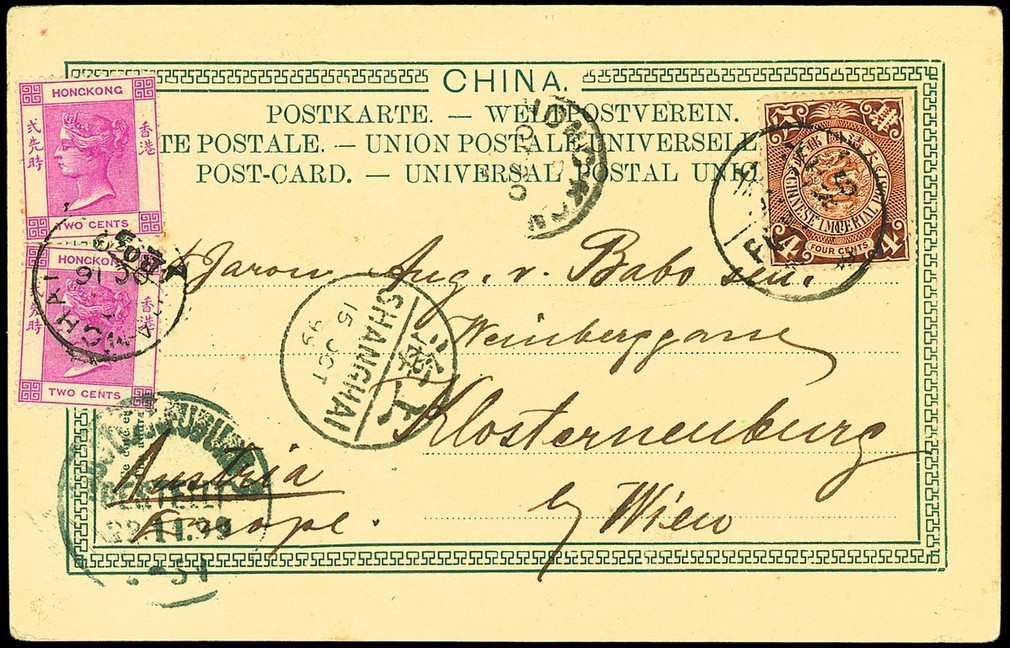 CHINA.
POSTKARTE. — WELTPOSTVEREIN.
TE POSTALE. — UNION POSTALE UNIVERSELLE
POST-CARD. — UNIVERSAL POSTAL UNION
HONGKONG
香港
TWO CENTS
HONGKONG
香港
TWO CENTS
CHINESE IMPERIAL POST
4 4
FOUR CENTS
SHANGHAI
15 OCT
99
上海
OC 16
Baron Aug. v. Babo sen.
Weinberggasse
Klosterneuburg
by Wien
Austria
Europe.
BESTELLT
22.11.99